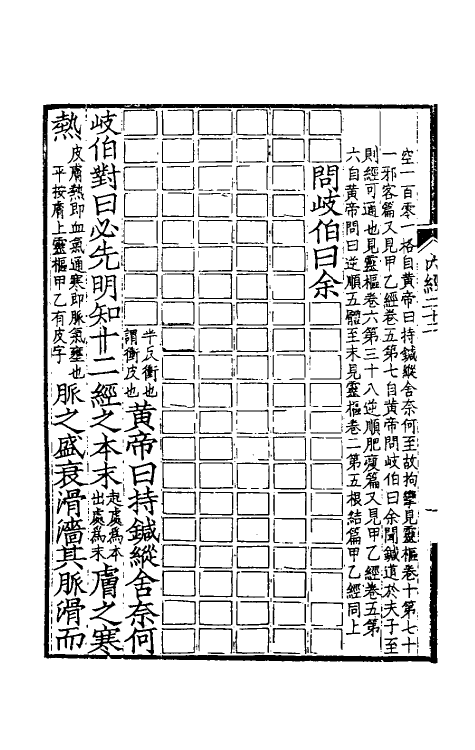 空一百零一格自黃帝曰持鍼縱舍奈何至故拘攣見靈樞卷十第七十
一邪客篇又見甲乙經卷五第七自黃帝問岐伯曰余聞鍼道於夫子至
則經可通也見靈樞卷六第三十八逆順肥瘦篇又見甲乙經卷五第
六自黃帝問曰逆順五體至末見靈樞卷二第五根結篇甲乙經同上
問岐伯曰余
半反衝也
謂衝皮也
黃帝曰持鍼縱舍奈何
岐伯對曰必先明知十二經之本末
起處為本
出處為末
膚之寒
熱
皮膚熱即血氣通寒即脈氣壅也
平按膚上靈樞甲乙有皮字
脈之盛衰滑濇其脈滑而
內經二十二